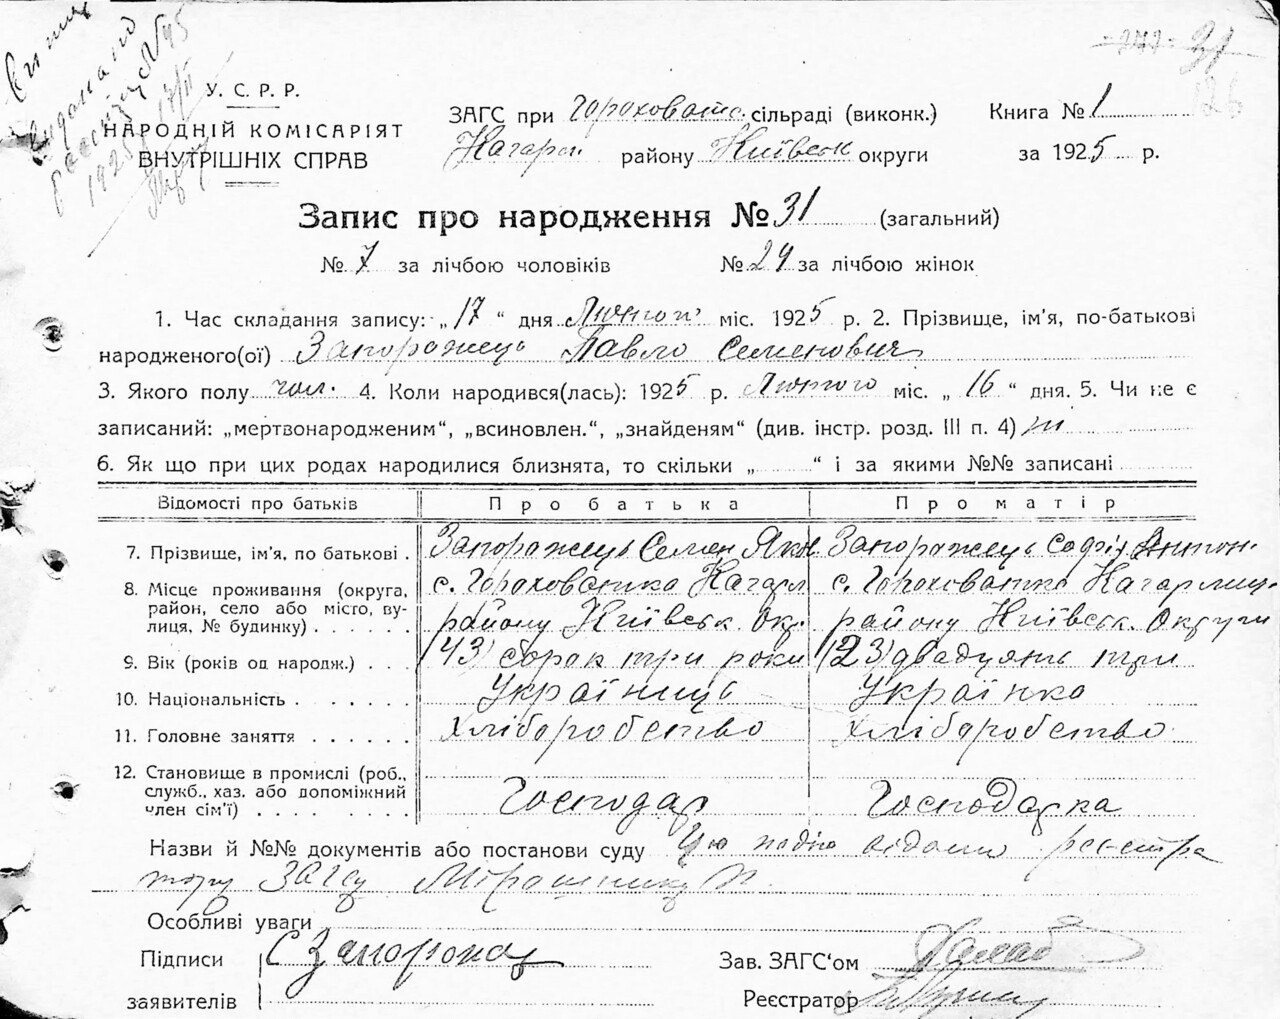 Витяг
видано
реєстрац №45
1925 17/II
- 272 - 31
126
У. С. Р. Р.
НАРОДНІЙ КОМІСАРІЯТ
ВНУТРІШНІХ СПРАВ
ЗАГС при Гороховатс. сільраді (виконк.)
Кагарл району Київськ округи
Книга № 1
за 1925 р.
Запис про народження № 31 (загальний)
№ 7 за лічбою чоловіків № 24 за лічбою жінок
1. Час складання запису: „17“ дня Лютого міс. 1925 р. 2. Прізвище, ім'я, по-батькові
народженого(ої) Запоражець Павло Семенович
3. Якого полу чол. 4. Коли народився(лась): 1925 р. Лютого міс. „16“ дня. 5. Чи не є
записаний: „мертвонародженим“, „всиновлен.“, „знайденям“ (див. інстр. розд. III п. 4) ні
6. Як що при цих родах народилися близнята, то скільки „ “ і за якими №№ записані
Відомості про батьків Про батька Про матір
7. Прізвище, ім'я, по батькові . Запоражець Семен Яки. Запоражець Софія Антон.
8. Місце проживання (округа, с. Гороховатка Кагарл с. Гороховатка Кагарлиц.
район, село або місто, ву-
лиця, № будинку) . . . . . . району Київськ. Окр. району Київськ. Округи
9. Вік (років од народж.) . . . (43) сорок три роки (23) двадцять три
10. Національність . . . . . . . Українець Українка
11. Головне заняття . . . . . . Хліборобство Хліборобство
12. Становище в промислі (роб.,
служб., хаз. або допоміжний
член сім'ї) . . . . . . . . . Господар Господарка
Назви й №№ документів або постанови суду Цю подію відомо реєстра
тору ЗАГСу Мірошнику П.
Особливі уваги
Підписи С Запорожец Зав. ЗАГС'ом
заявителів Реєстратор